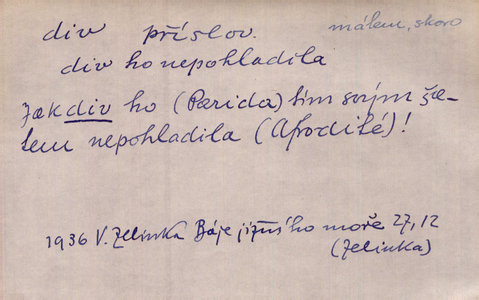 div příslov. málem, skoro
div ho nepohladila
Jak div ho (Parida) tím svým ša-
tem nepohladila (Afrodité)!
1936 V. Zelinka Báje jižního moře 27,12
(Zelinka)